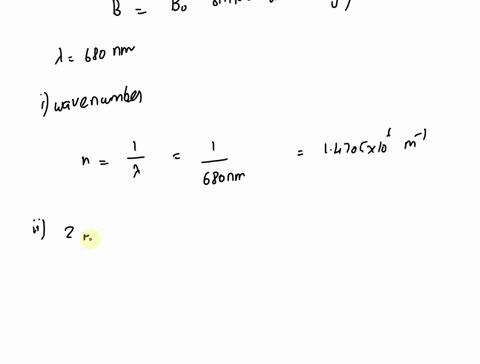 B = B₀
λ = 680 nm
i) wavenumber
n = 1/λ = 1/680nm = 1.4705x10⁶ m⁻¹
ii) 2